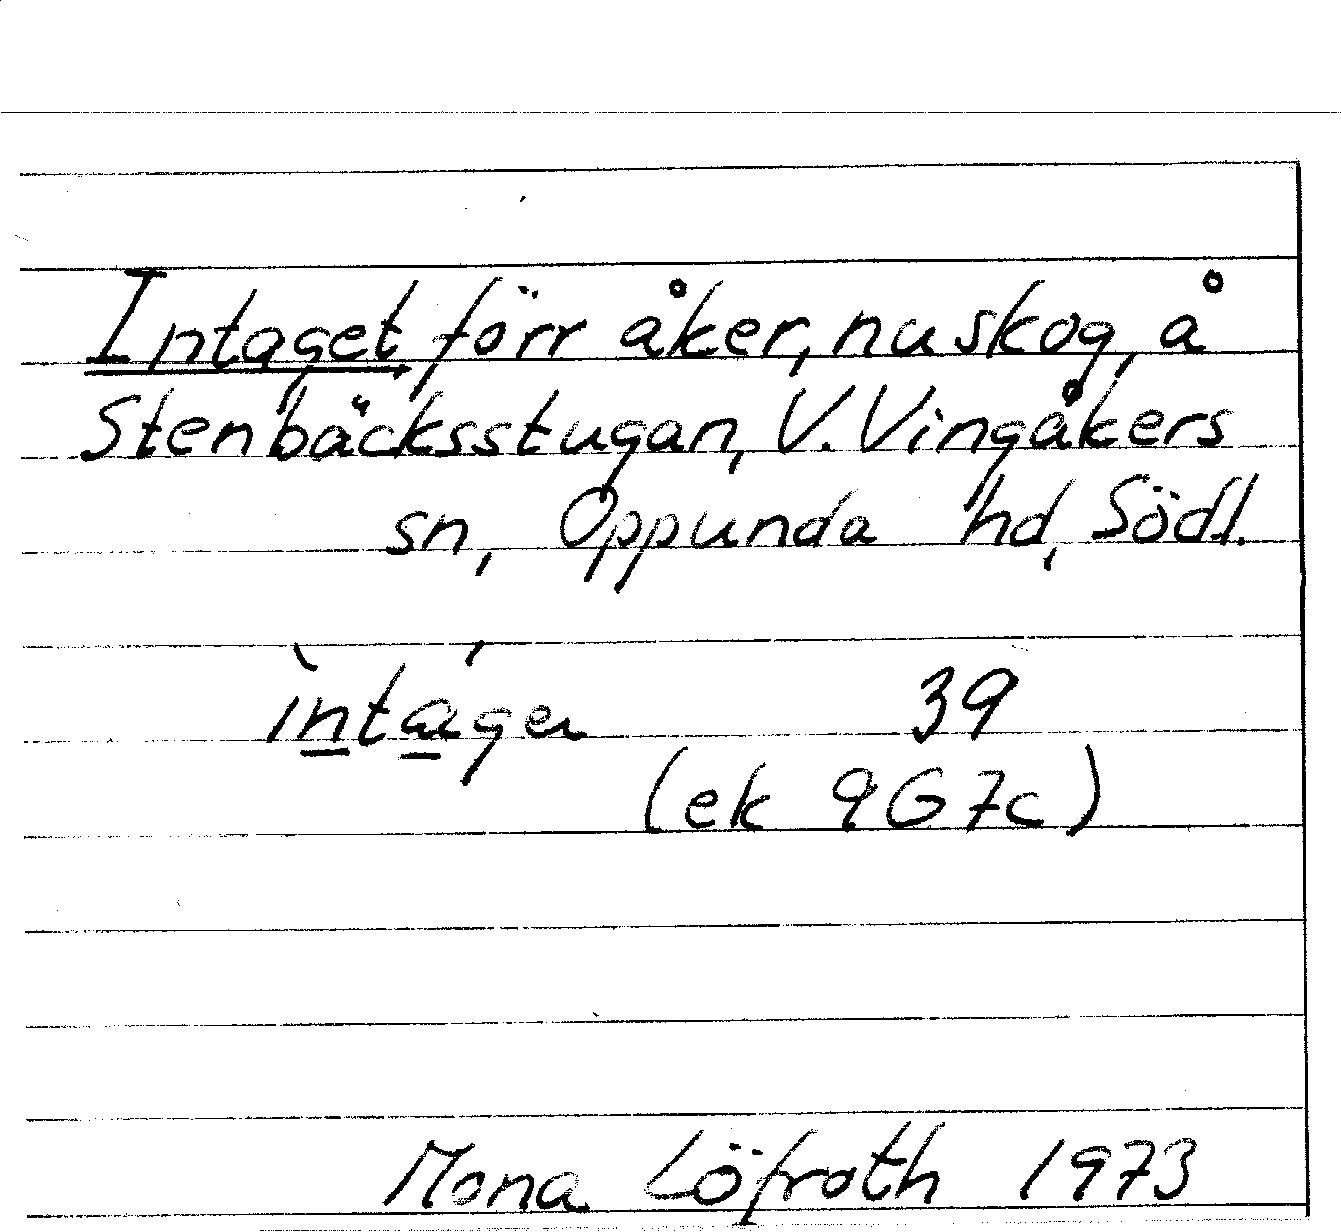 Intaget förr åker, nu skog, å
Stenbäcksstugan, V. Vingåkers
sn, Oppunda hd, Södl.
ìntáger 39
(ek 9G7c)
Mona Löfroth 1973